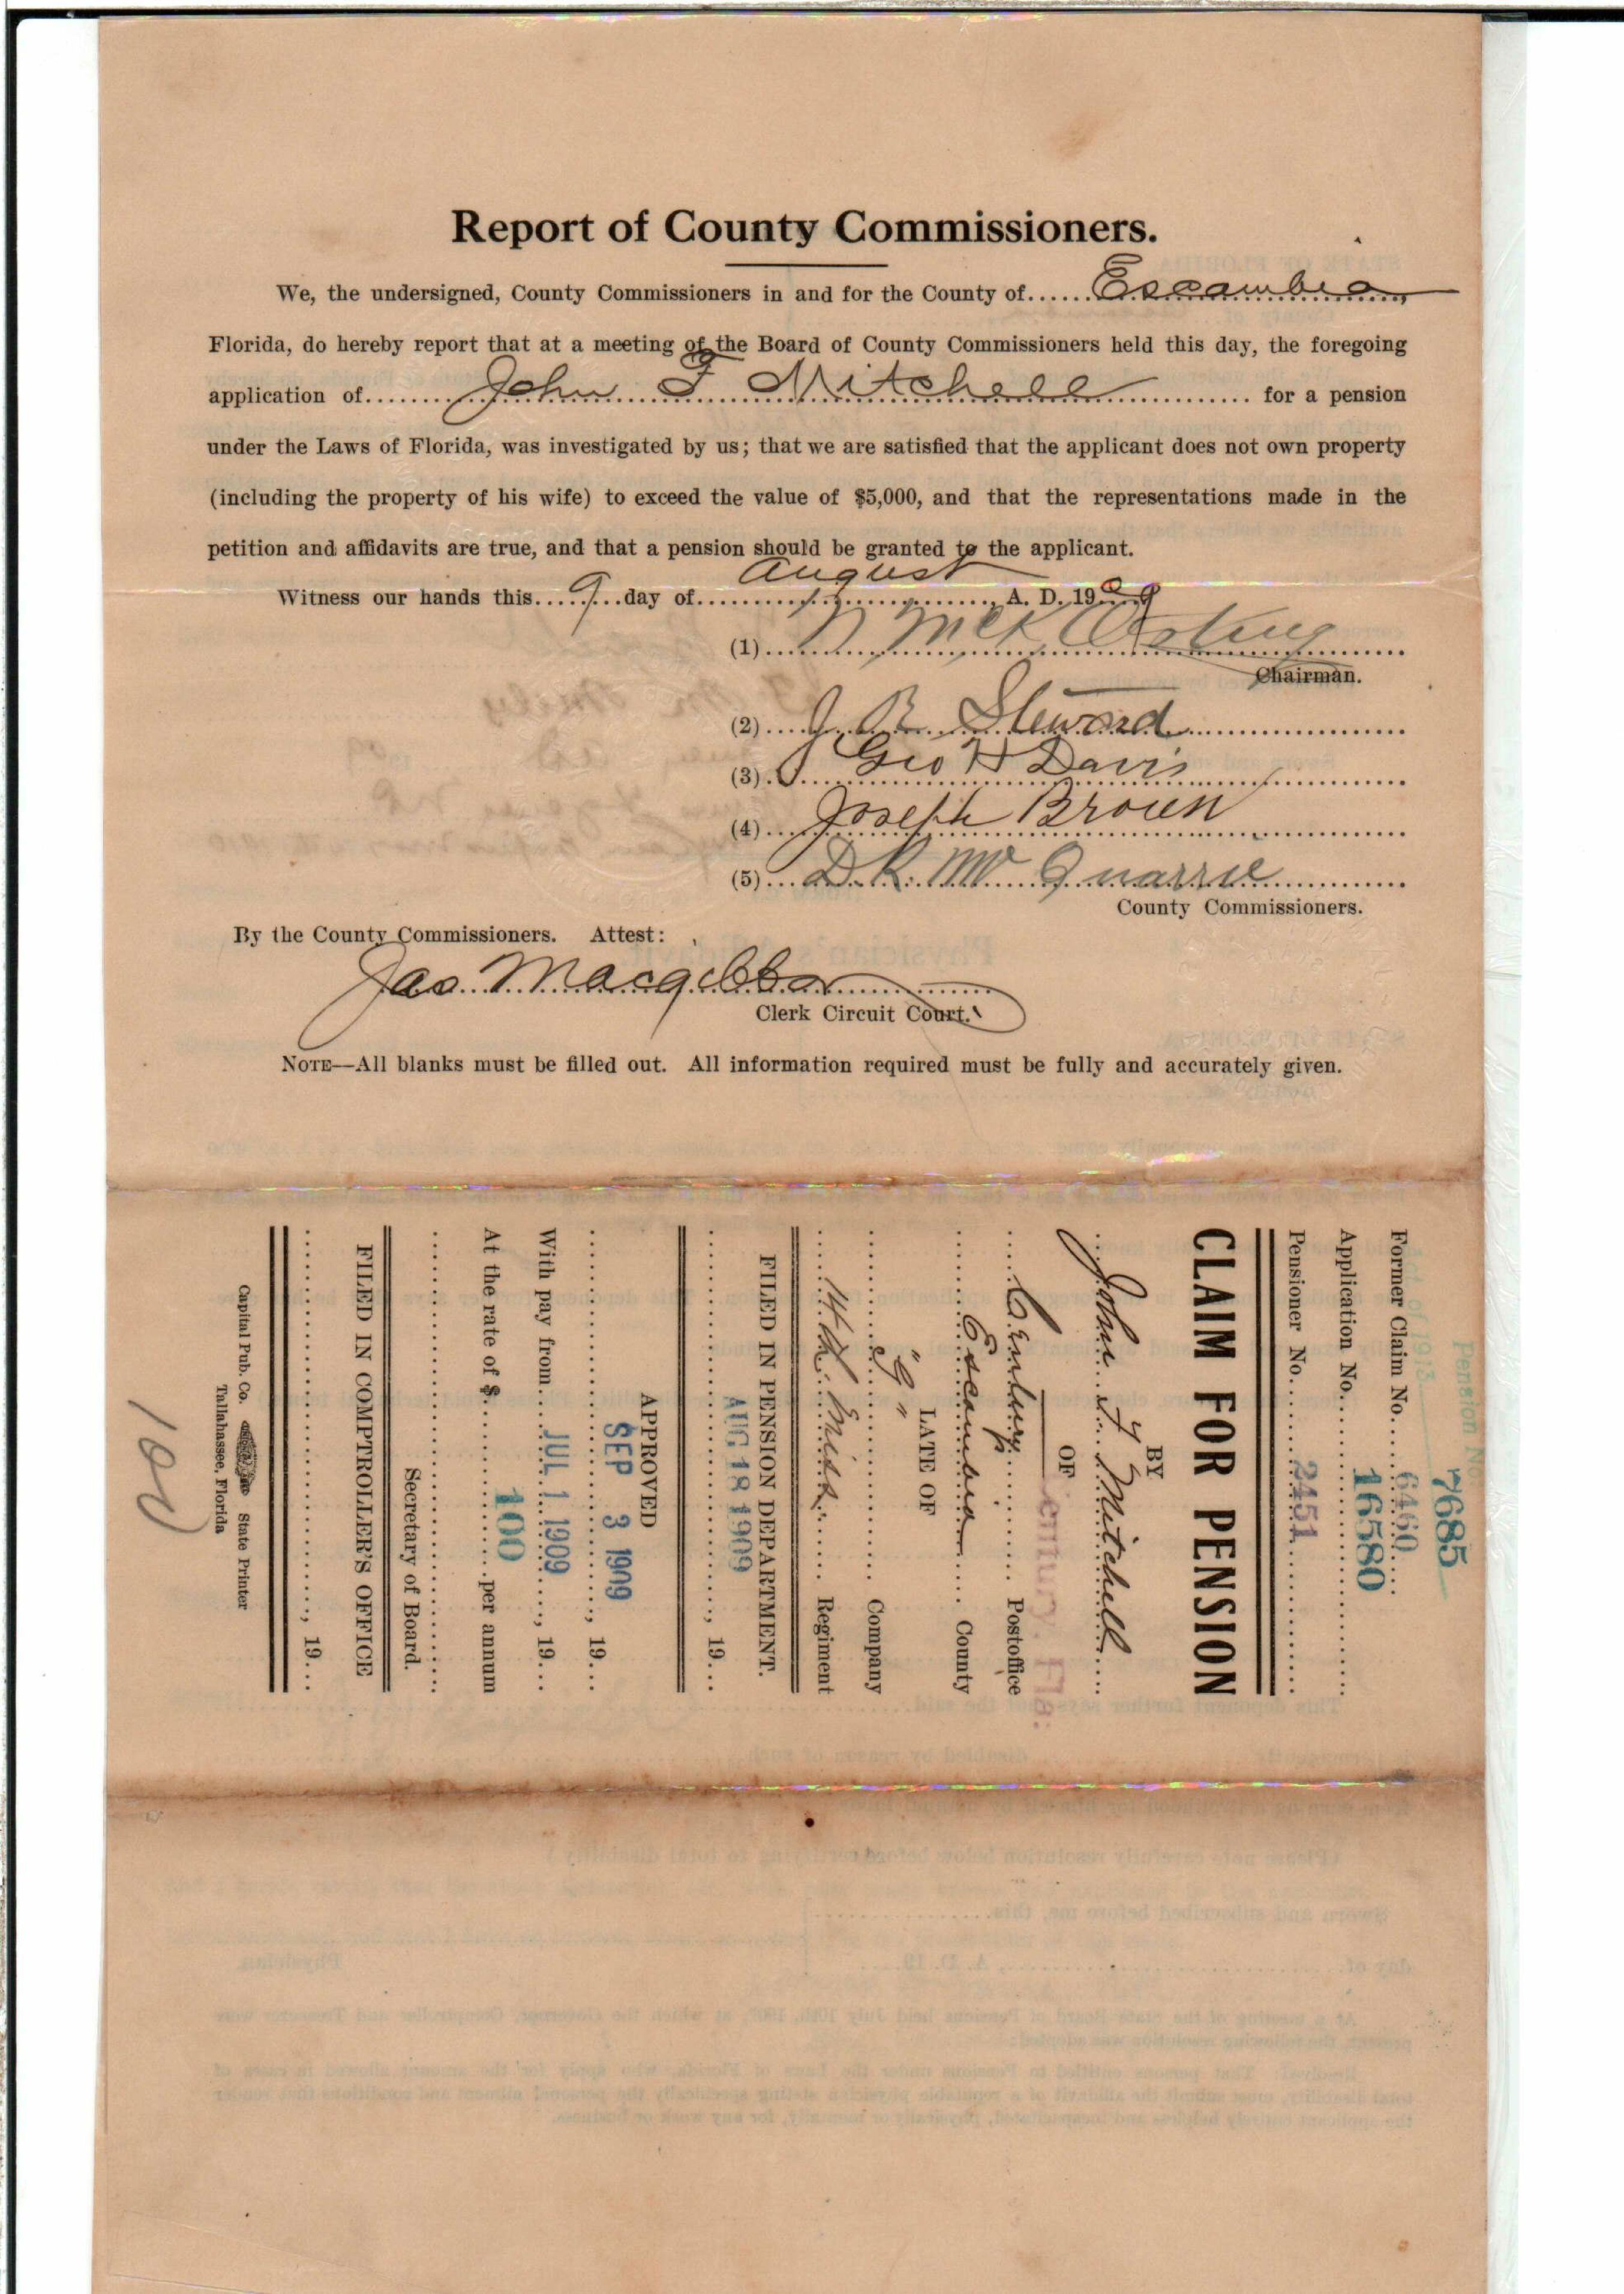 Report of County Commissioners.
We, the undersigned, County Commissioners in and for the County of......Escambia,
Florida, do hereby report that at a meeting of the Board of County Commissioners held this day, the foregoing
application of John F Mitchell for a pension
under the Laws of Florida, was investigated by us; that we are satisfied that the applicant does not own property
(including the property of his wife) to exceed the value of $5,000, and that the representations made in the
petition and affidavits are true, and that a pension should be granted to the applicant.
Witness our hands this 9 day of August, A. D. 1909
(1) N McK
Chairman.
(2) J. R. Steward
(3) Geo H Davis
(4) Joseph Brown
(5) D. R. Mc Quarrie
County Commissioners.
By the County Commissioners. Attest:
Jas Macgibbon
Clerk Circuit Court.
NOTE—All blanks must be filled out. All information required must be fully and accurately given.
Pension No.
7685
Act of 1913
Former Claim No. 6460
Application No. 16580
Pensioner No. 2451
CLAIM FOR PENSION
BY
John F. Mitchell
OF
Century, Fla.
Century Postoffice
Escambia County
LATE OF
"G" Company
14th Miss. Regiment
FILED IN PENSION DEPARTMENT.
AUG 18 1909
, 19
APPROVED
SEP 3 1909
, 19
With pay from JUL 1 1909, 19
At the rate of $ 100 per annum
Secretary of Board.
FILED IN COMPTROLLER'S OFFICE
, 19
Capital Pub. Co. State Printer
Tallahassee, Florida
100